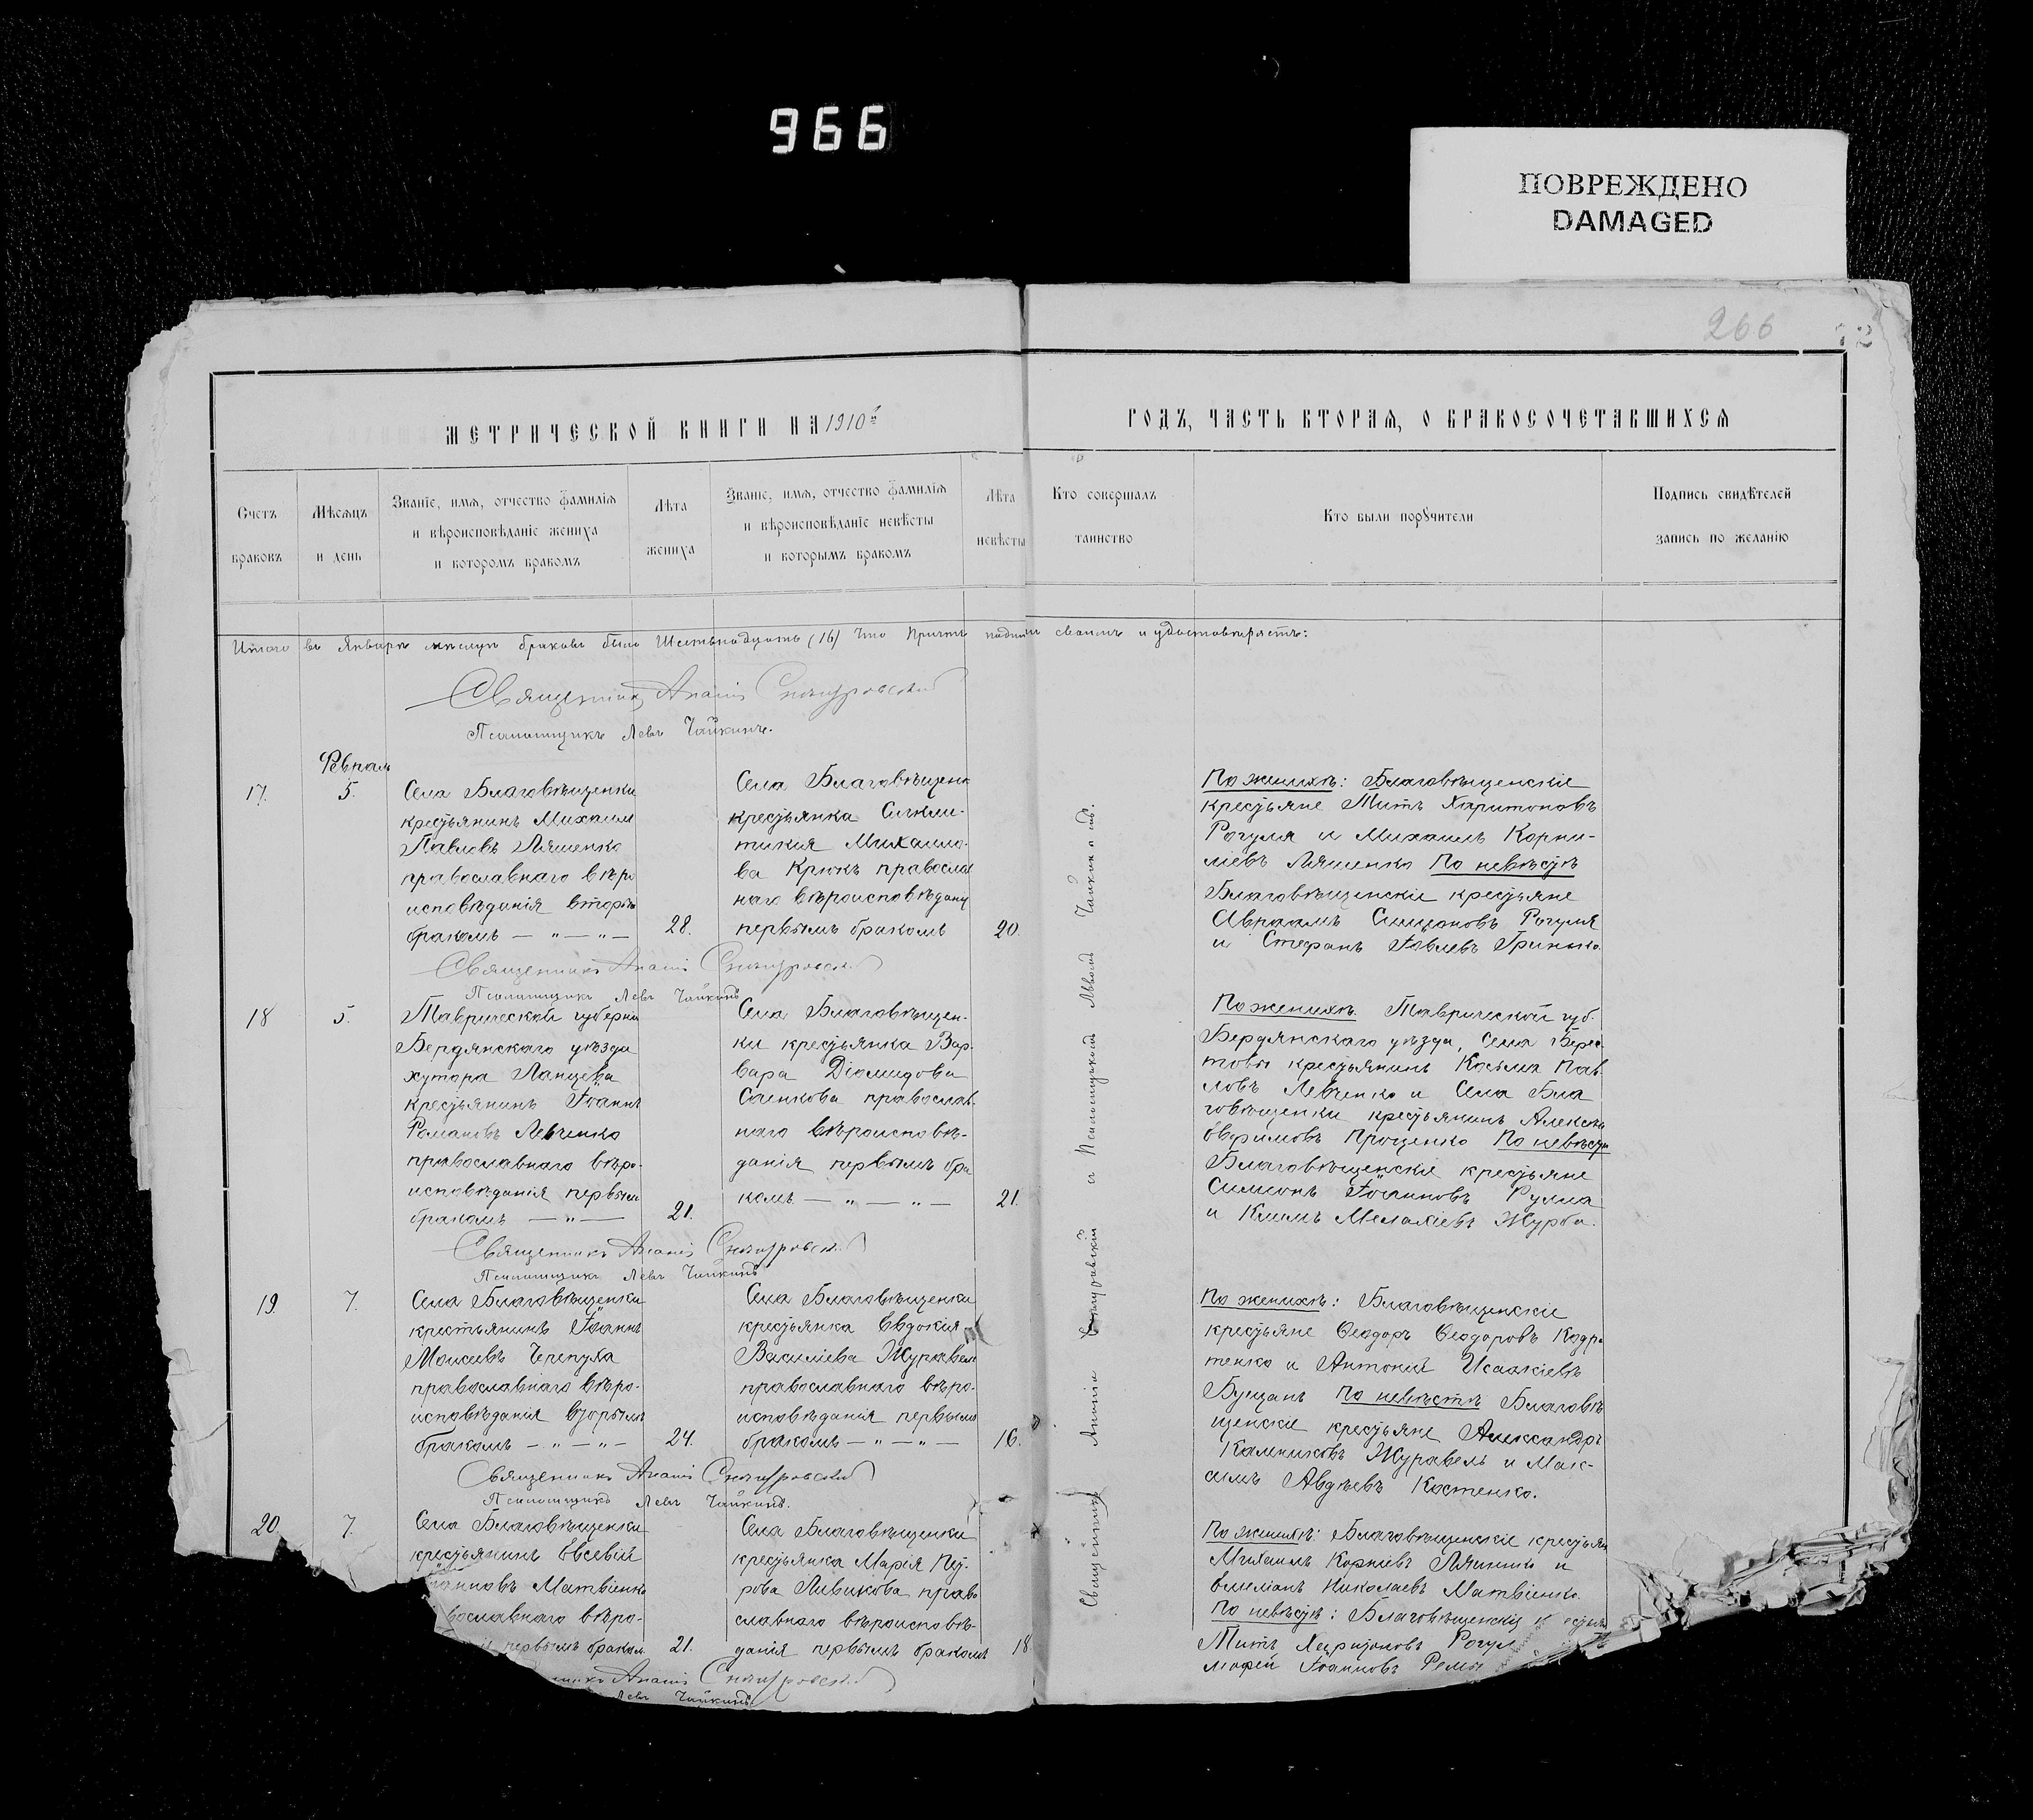 966
ПОВРЕЖДЕНО
DAMAGED
266
МЕТРИЧЕСКОЙ КНИГИ НА 1910й
ГОДЪ, ЧАСТЬ ВТОРАЯ, О БРАКОСОЧЕТАВШИХСЯ
Счетъ
браковъ
Мѣсяцъ
и день
Званіе, имя, отчество фамилія
и вѣроисповѣданіе жениха
и которомъ бракомъ
Лѣта
жениха
Званіе, имя, отчество фамилія
и вѣроисповѣданіе невѣсты
и которымъ бракомъ
Лѣта
невѣсты
Кто совершалъ
таинство
Кто были порꙋчители
Подпись свидѣтелей
запись по желанію
Итого въ Январѣ мѣсяцѣ браковъ было Шестьнадцать (16) Что Причтъ своимъ и удостовѣряетъ:
Священникъ Ананій
Псаломщикъ Левъ Чайкинъ.
Февраль
17.
5.
Села Благовѣщенки
крестьянинъ Михаилъ
Павловъ Ляшенко
православнаго вѣро
исповѣданія вторымъ
бракомъ — „ — „ —
28.
Села Благовѣщенк
крестьянка Сигкли-
тикія Михаило-
ва Крюкъ православ
наго вѣроисповѣданія
первымъ бракомъ
20.
По женихѣ: Благовѣщенскіе
крестьяне Титъ Харитоновъ
Рогуля и Михаилъ Корни-
ліевъ Ляшенко По невѣстѣ
Благовѣщенскіе крестьяне
Авраамъ Симоновъ Рогуля
и Стефанъ Іовлевъ Гринько
Священникъ Ананій
Псаломщикъ Левъ Чайкинъ
18
5.
Таврической губерніи
Бердянскаго уѣзда
хутора Ланцева
крестьянинъ Іоаннъ
Романовъ Левченко
православнаго вѣро-
исповѣданія первымъ
бракомъ — „ —
21.
Села Благовѣщен-
ки крестьянка Вар-
вара Діомидова
Саенкова православ-
наго вѣроисповѣ-
данія первымъ бра
комъ — „ — „ —
21.
По женихѣ. Таврической губ.
Бердянскаго уѣзда, Села Берес-
товы крестьянинъ Косьма Пав
ловъ Левченко и Села Бла
говѣщенки крестьянинъ Алексѣй
Евфимовъ Проценко По невѣстѣ
Благовѣщенскіе крестьяне
Симеонъ Іоанновъ
и Климъ Мелахіевъ Журба.
Священникъ Ананій
Псаломщикъ Левъ Чайкинъ
19
7.
Села Благовѣщенки
крестьянинъ Іоаннъ
Моисеевъ Черепуха
православнаго вѣро-
исповѣданія вторымъ
бракомъ — „ — „ —
24.
Села Благовѣщенки
крестьянка Евдокія
Василіева Журавель
православнаго вѣро-
исповѣданія первымъ
бракомъ — „ — „ —
16.
По женихѣ: Благовѣщенскіе
крестьяне Ѳеодоръ Ѳеодоровъ Кодра
тенко и Антоній Исаакіевъ
Буцанъ По невѣстѣ Благовѣ
щенскіе крестьяне Александръ
Калениковъ Журавель и Мак-
симъ Авдѣевъ Костенко.
Священникъ Ананій
Псаломщикъ Левъ Чайкинъ.
20.
7.
Села Благовѣщенки
крестьянинъ Евсевій
Іоанновъ Матвіенко
вославнаго вѣро-
первымъ бракомъ
21.
Села Благовѣщенки
крестьянка Марія Пет-
рова Ливикова право
славнаго вѣроисповѣ-
данія первымъ бракомъ
18
По женихѣ: Благовѣщенскіе крестьяне
Михаилъ Корніевъ Ляшенко и
Емеліанъ Николаевъ Матвіенко.
По невѣстѣ: Благовѣщенскіе
Титъ Харитоновъ Рогул
Іоанновъ
Ананій
Левъ Чайкинъ.
Священникъ Ананій и Псаломщикомъ Львомъ Чайкинымъ.